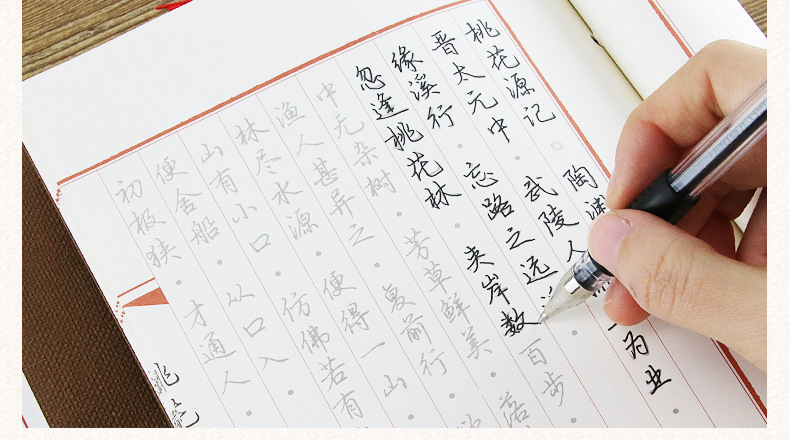 桃花源记 陶渊
晋太元中·武陵人 为业
缘溪行·忘路之远
忽逢桃花林·夹岸数百步·
中无杂树·芳草鲜美·落
渔人甚异之·复前行·
林尽水源·便得一山
山有小口·仿佛若有
便舍船·从口入·
初极狭·才通人·
桃